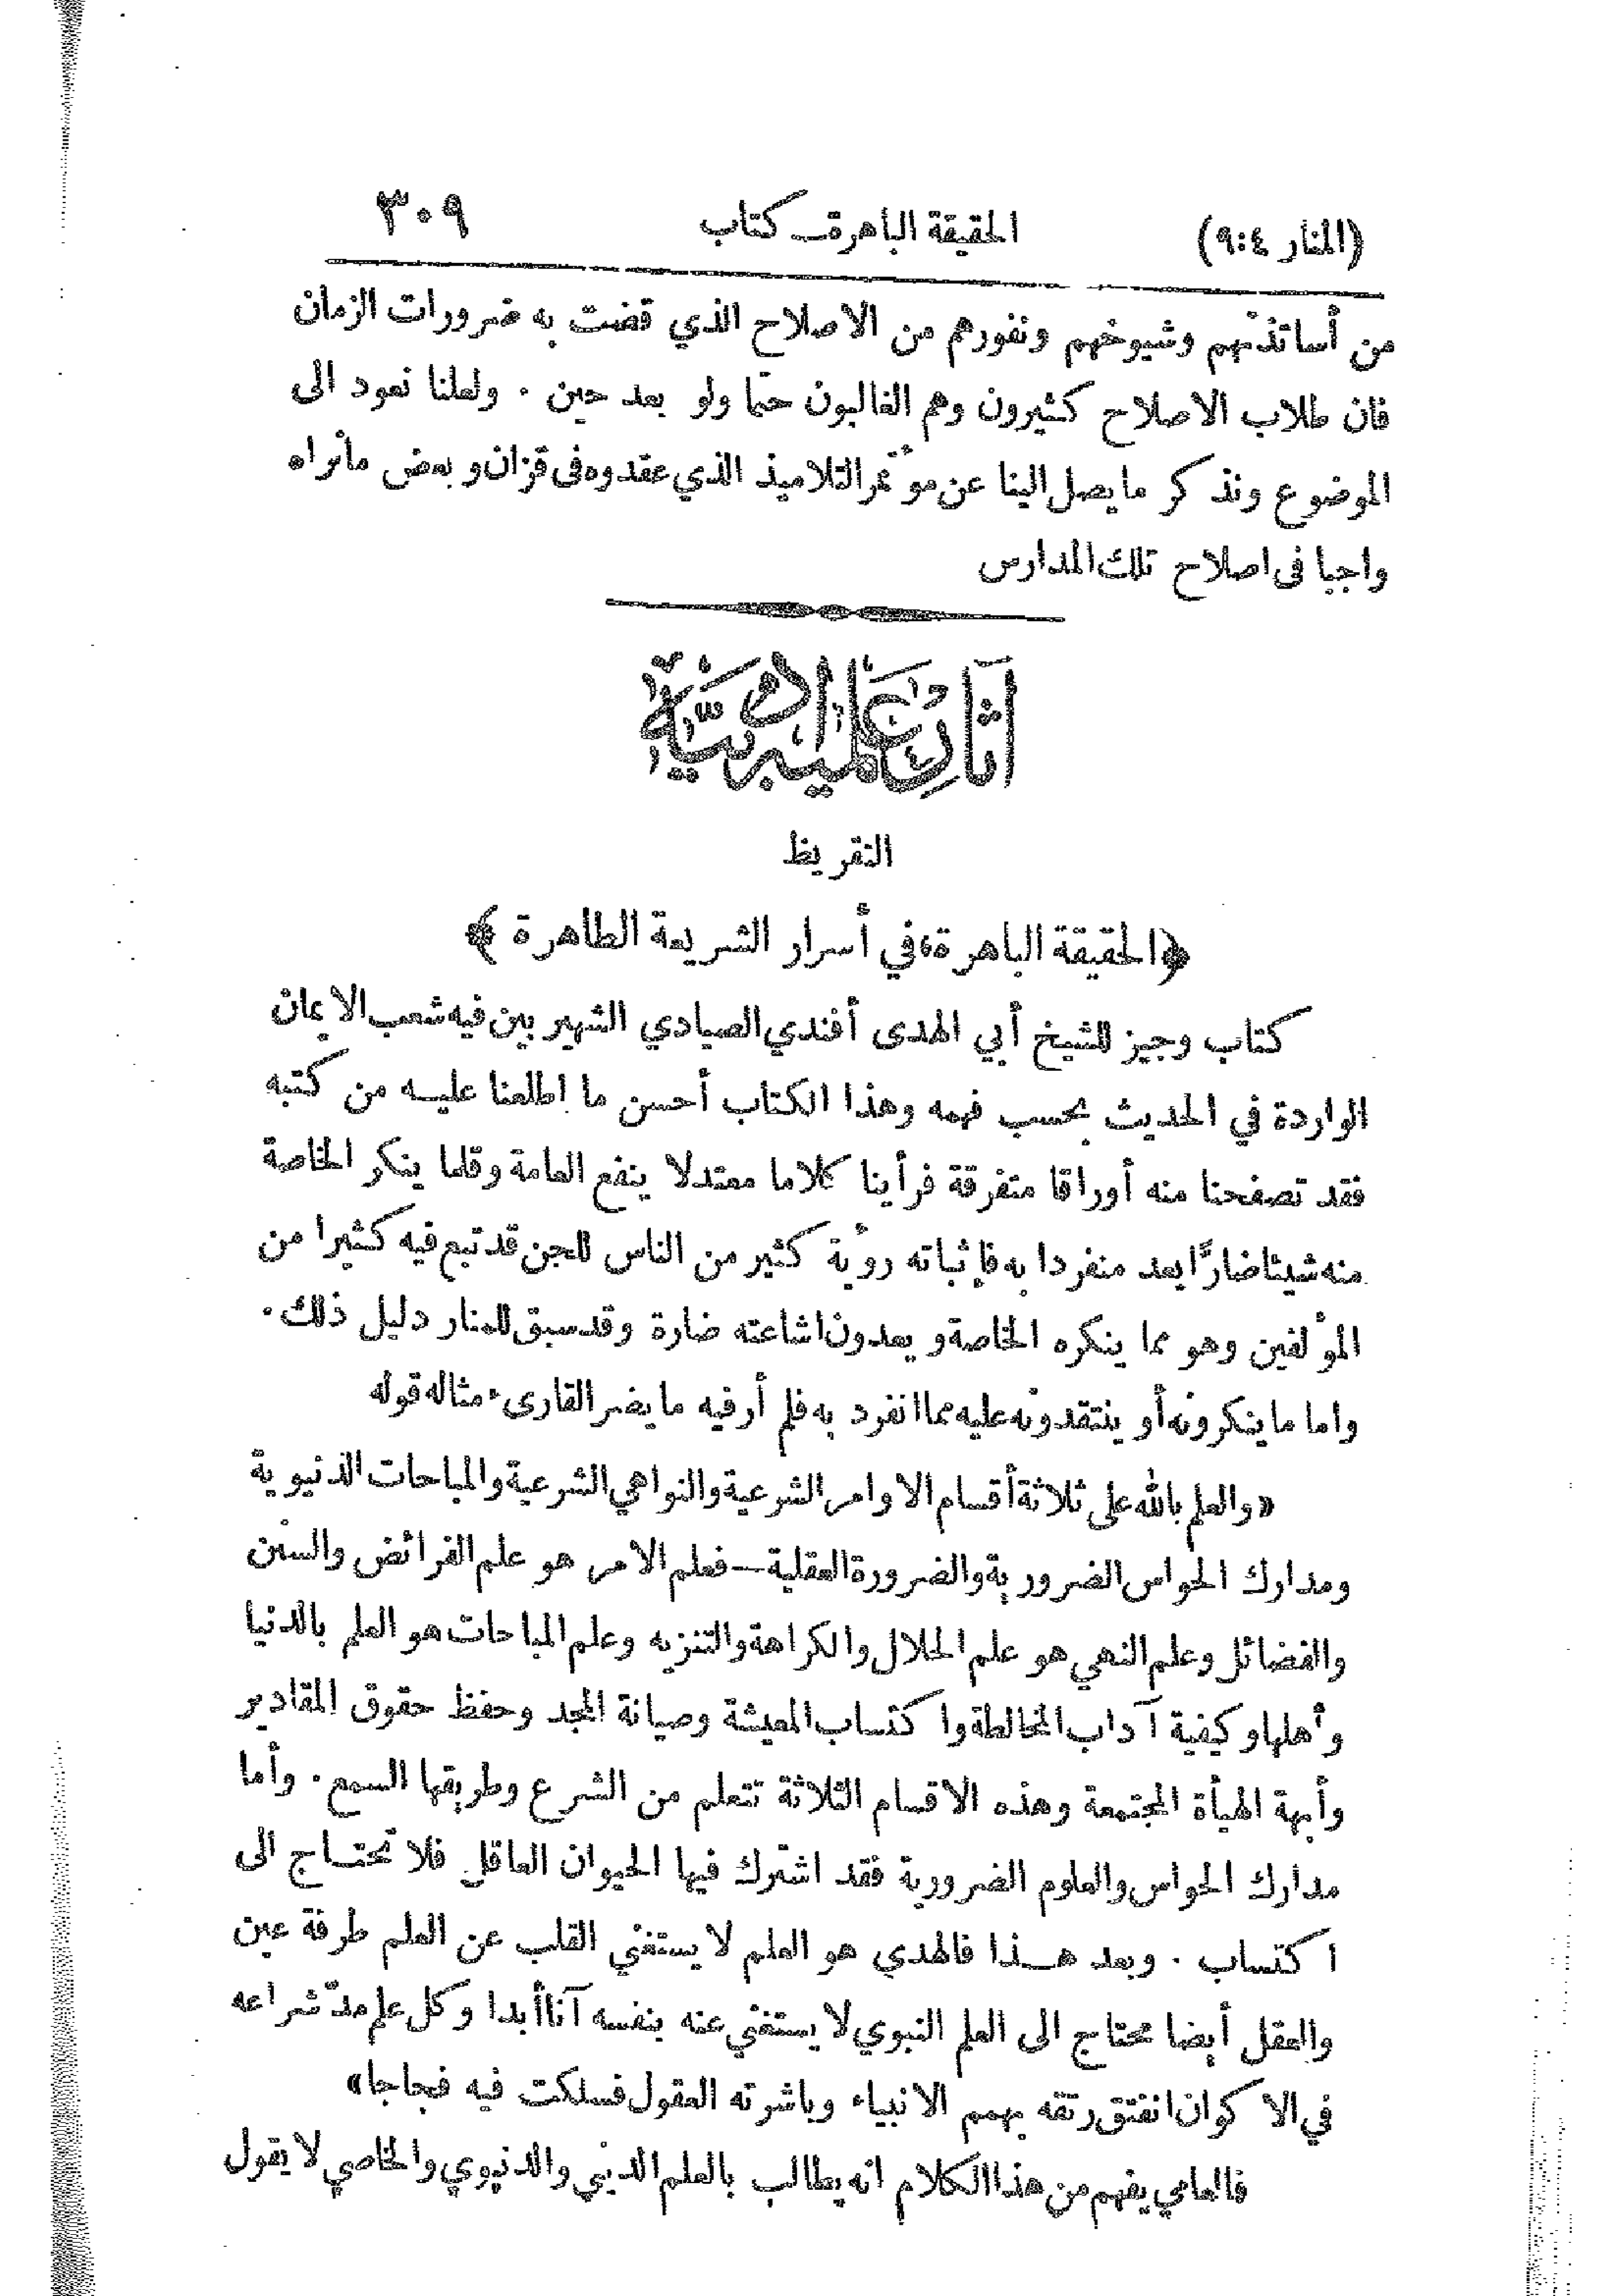 (المنار ٩:٤) الحقيقة الباهرة ــ كتاب ٣٠٩
من أساتذتهم وشيوخهم ونفورهم من الاصلاح الذي قضت به ضرورات الزمان
فان طلاب الاصلاح كثيرون وهم الغالبون حتما ولو بعد حين . ولعلنا نعود الى
الموضوع ونذكر ما يصل الينا عن مؤتمر التلاميذ الذي عقدوه فى قزان وبعض ما نراه
واجبا فى اصلاح تلك المدارس
آثار علمية ادبية
التقريظ
﴿الحقيقة الباهرة، في أسرار الشريعة الطاهرة﴾
كتاب وجيز للشيخ أبي الهدى أفندي الصيادي الشهير بين فيه شعب الايمان
الواردة في الحديث بحسب فهمه وهذا الكتاب أحسن ما اطلعنا عليه من كتبه
فقد تصفحنا منه أوراقا متفرقة فرأينا كلاما معتدلا ينفع العامة وقلما ينكر الخاصة
منه شيئا ضارًا يعد منفردا به فإثباته رؤية كثير من الناس للجن قد تبع فيه كثيرا من
المؤلفين وهو مما ينكره الخاصة ويعدون اشاعته ضارة وقد سبق للمنار دليل ذلك.
واما ما ينكرونه أو ينتقدونه عليه مما انفرد به فلم أر فيه ما يضر القارىء مثاله قوله
«والعلم بالله على ثلاثة أقسام الاوامر الشرعية والنواهي الشرعية والمباحات الدنيوية
ومدارك الحواس الضرورية والضرورة العقلية ــ فعلم الامر هو علم الفرائض والسنن
والفضائل وعلم النهي هو علم الحلال والكراهة والتنزيه وعلم المباحات هو العلم بالدنيا
وأهلها وكيفية آداب المخالطة واكتساب المعيشة وصيانة المجد وحفظ حقوق المقادير
وأبهة الهيأة المجتمعة وهذه الاقسام الثلاثة تتعلم من الشرع وطريقها السمع . وأما
مدارك الحواس والعلوم الضرورية فقد اشترك فيها الحيوان العاقل فلا تحتاج الى
اكتساب . وبعد هـذا فالهدي هو العلم لا يستغني القلب عن العلم طرفة عين
والعقل أيضا محتاج الى العلم النبوي لا يستغني عنه بنفسه آنا أبدا وكل علم مدّ شراعه
في الاكوان انفتق رتقه بهمم الانبياء وباشرته العقول فسلكت فيه فجاجا»
فالعامي يفهم من هذا الكلام انه يطالب بالعلم الديني والدنيوي والخاصي لا يقول